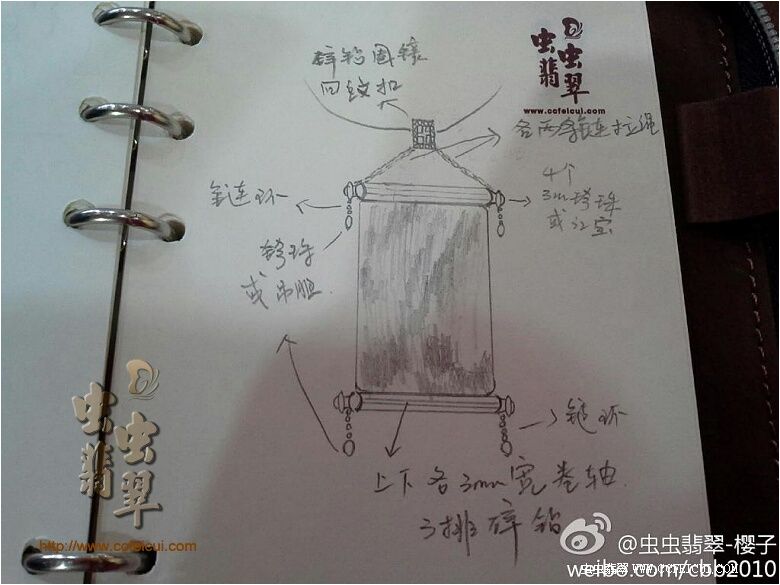 虫虫翡翠
www.ccfeicui.com
碎钻围镶
回纹扣
各两条链拉绳
4个
3mm珠
或红宝
链环
或吊胆
链环
上下各3mm宽卷轴
3排碎钻
虫虫翡翠
http://www.ccfeicui.com
@虫虫翡翠-樱子
weibo.com/cbb2010